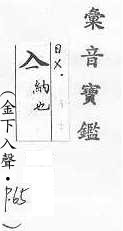 彙音寶鑑
日メ.
入
納也
(金下入聲·P.65)